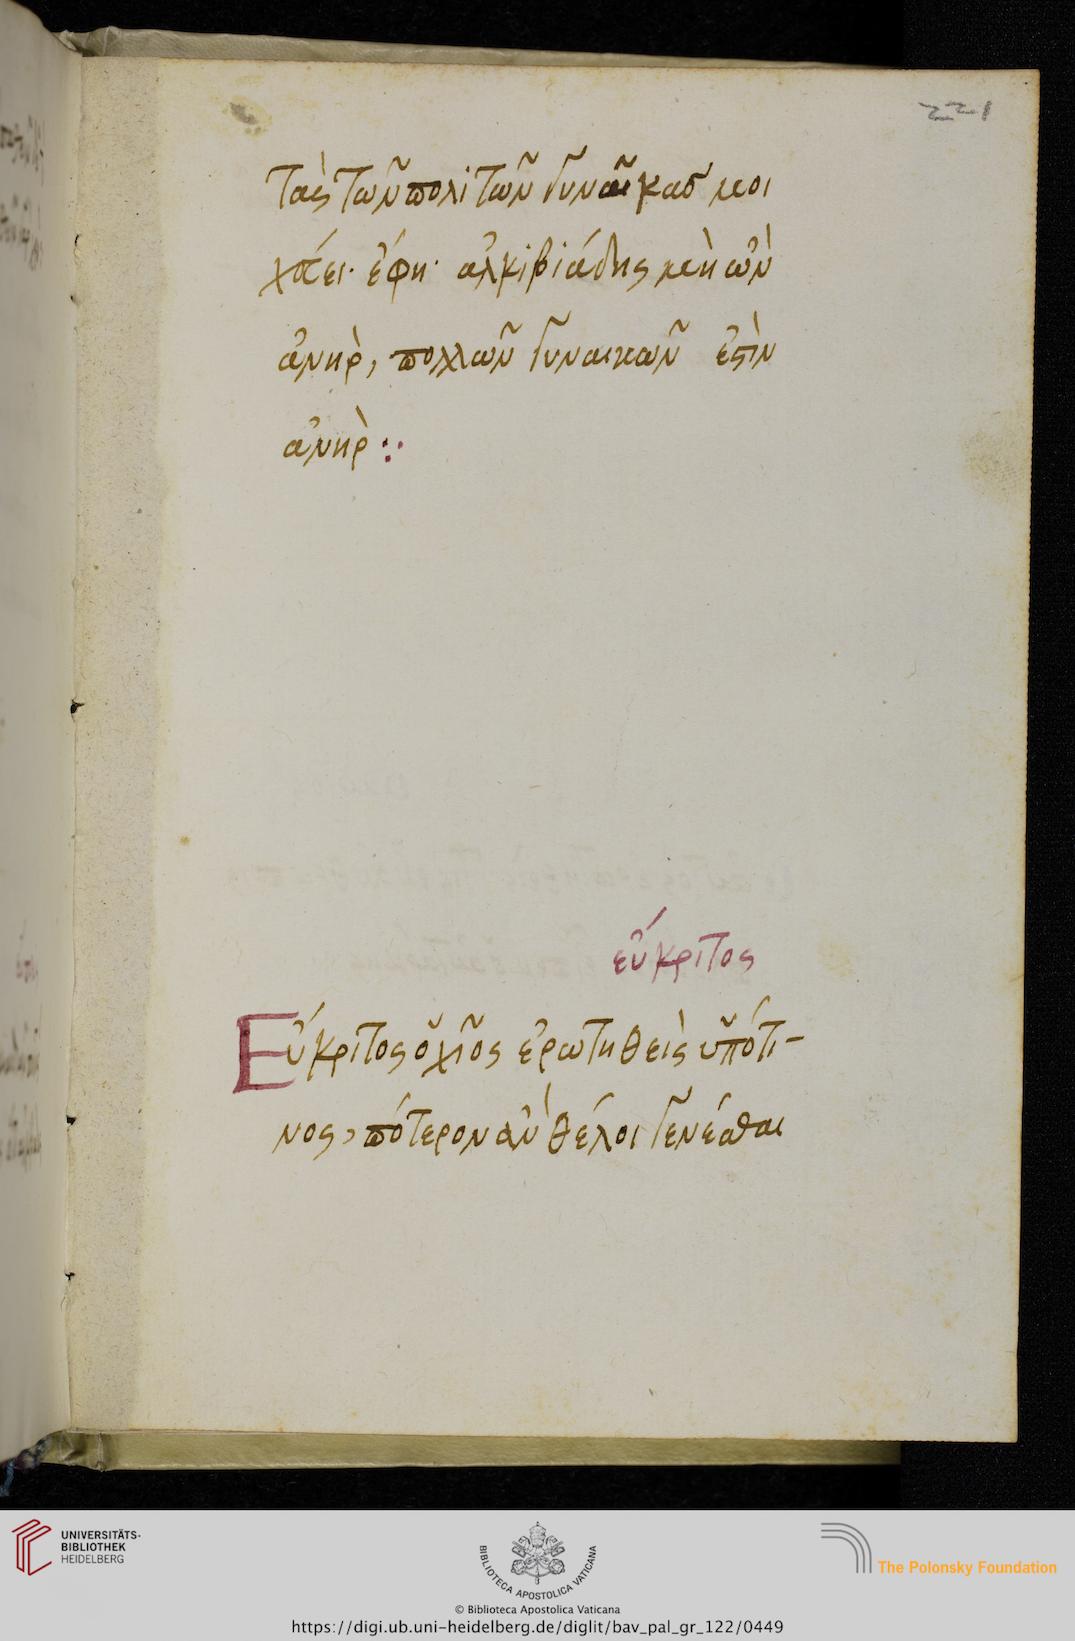 221
τὰς τῶν πολιτῶν γυναῖκας μοι
χᾶται· ἔφη· ἀλκιβιάδης μὴ ὢν
ἀνὴρ, πολλῶν γυναικῶν ἐστὶν
ἀνὴρ :·
εὔκριτος
Εὔκριτος ὁ χῖος ἐρωτηθεὶς ὑπό τι-
νος, πότερον ἂν θέλοι γενέσθαι
UNIVERSITÄTS-
BIBLIOTHEK
HEIDELBERG
BIBLIOTECA APOSTOLICA VATICANA
The Polonsky Foundation
© Biblioteca Apostolica Vaticana
https://digi.ub.uni-heidelberg.de/diglit/bav_pal_gr_122/0449